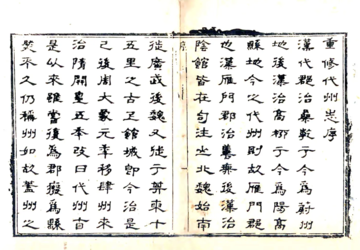 重修代州志序
漢代郡治桑乾于今為蔚州
地後漢治高柳于今為陽高
縣地今之代州則故雁門郡
也漢雁門郡治善無後漢治
陰館皆在句注北北魏始南
從廣武後魏又徙于東十
五里之古上館城即今治是
已後周大象元年移肆州來
治隋開皇五年改曰代州自
是以來雖嘗復為郡廢為縣
矣未久仍稱州如故蓋州之